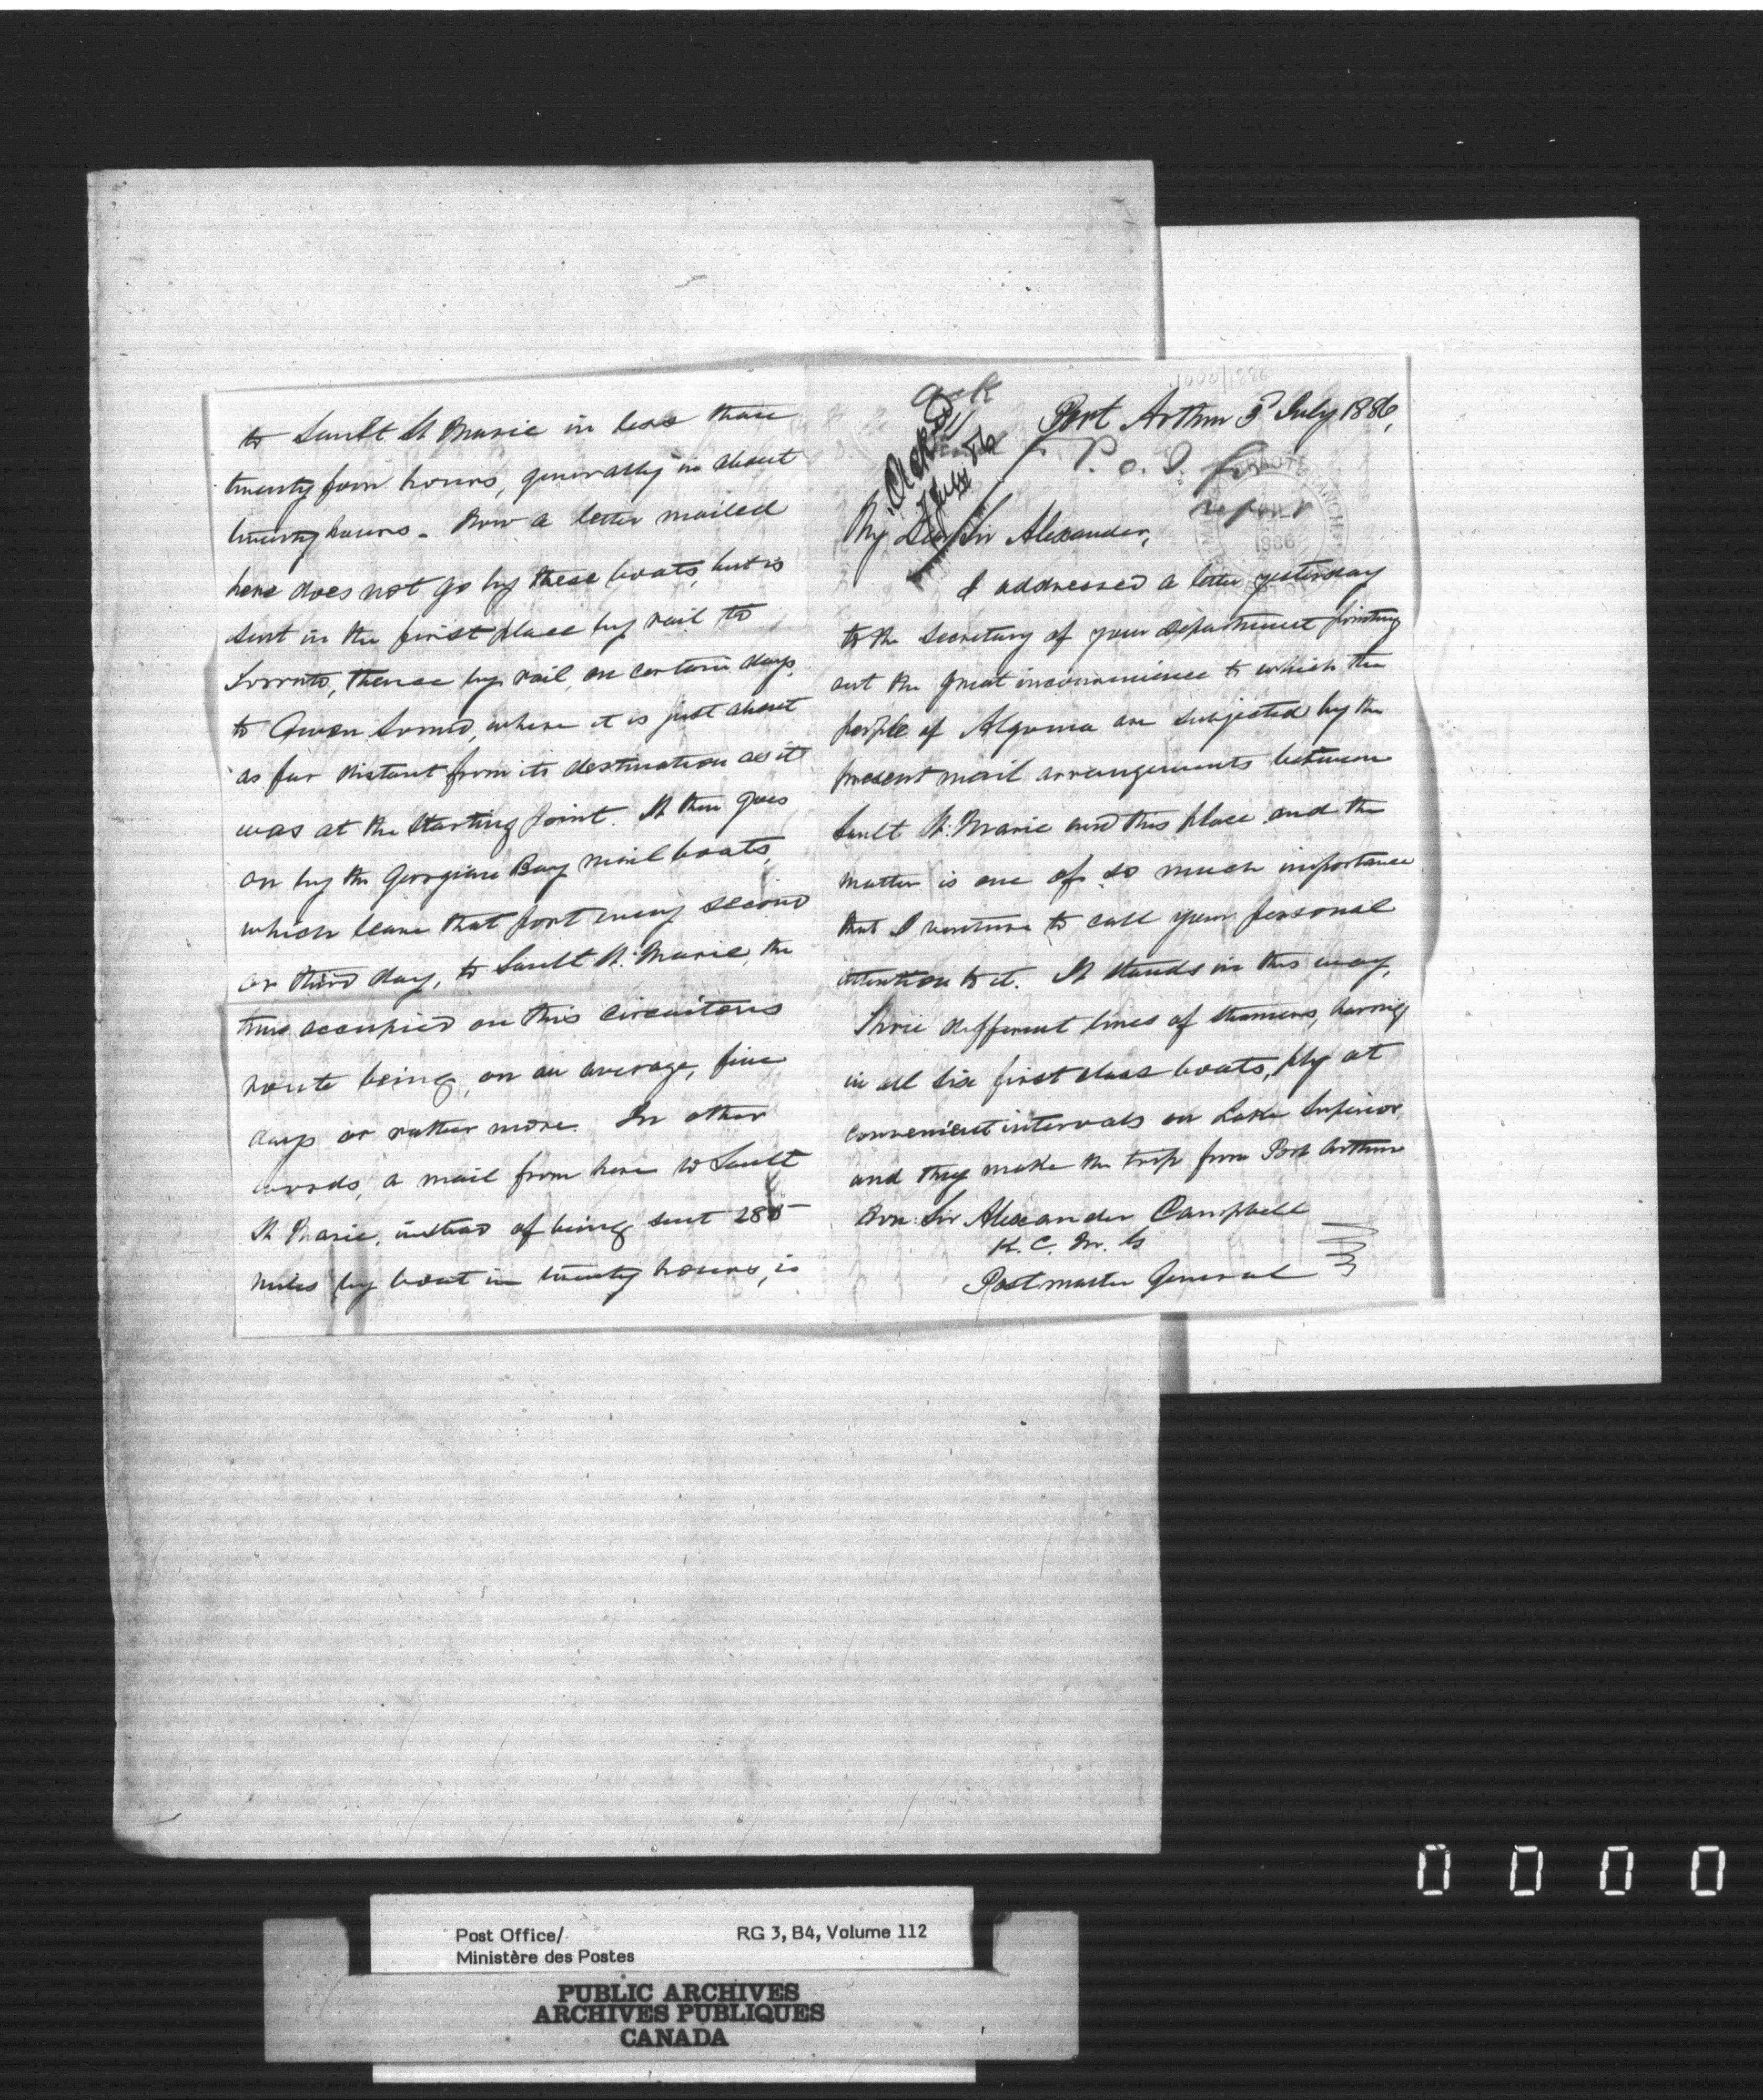 Ack
Ackd
July 86
1000/1886
Port Arthur 3d July 1886,
P. O. I. for
report
1886
My Dear Sir Alexander,
I addressed a letter yesterday
to the Secretary of your Department pointing
out the great inconvenience to which the
people of Algoma are subjected by the
present mail arrangements between
Sault St: Marie and this place and the
matter is one of so much importance
that I venture to call your personal
attention to it. It stands in this way,
Three different lines of steamers, having
in all six first class boats, ply at
convenient intervals on Lake Superior
and they make the trip from Port Arthur
Hon: Sir Alexander Campbell
K. C. M. G
Postmaster General
to Sault St Marie in less than
twenty four hours, generally in about
twenty hours. Now a letter mailed
here does not go by these boats, but is
sent in the first place by rail to
Toronto, thence by rail, on certain days,
to Owen Sound, where it is just about
as far distant from its destination as it
was at the starting point. It then goes
on by the Georgian Bay mail boats,
which leave that port every second
or third day, to Sault St. Marie, the
time occupied on this circuitous
route being, on an average, five
days or rather more. In other
words, a mail from here to Sault
St Marie, instead of being sent 285
miles by boat in twenty hours, is
0 0 0 0
Post Office/
Ministère des Postes
RG 3, B4, Volume 112
PUBLIC ARCHIVES
ARCHIVES PUBLIQUES
CANADA